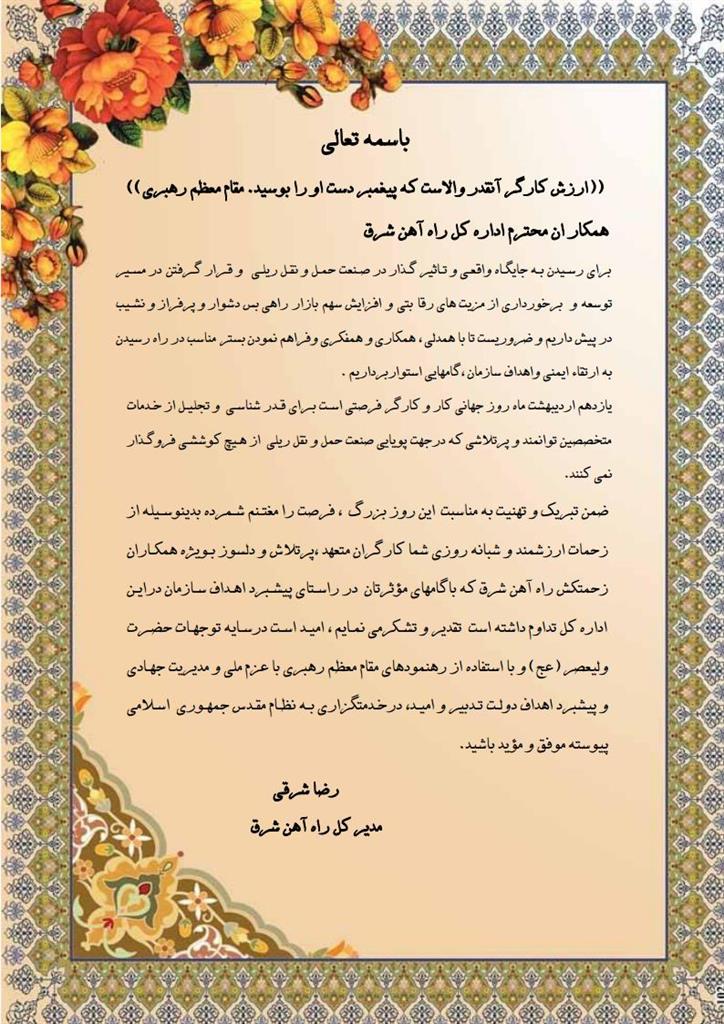 باسمه تعالی
((ارزش کارگر آنقدر والاست که پیغمبر دست او را بوسید. مقام معظم رهبری))
همکاران محترم اداره کل راه آهن شرق
برای رسیدن به جایگاه واقعی و تاثیر گذار در صنعت حمل و نقل ریلی و قرار گرفتن در مسیر
توسعه و برخورداری از مزیت های رقابتی و افزایش سهم بازار راهی بس دشوار و پرفراز و نشیب
در پیش داریم و ضروریست تا با همدلی، همکاری و همفکری وفراهم نمودن بستر مناسب در راه رسیدن
به ارتقاء ایمنی واهداف سازمان ،گامهایی استوار برداریم .
یازدهم اردیبهشت ماه روز جهانی کار و کارگر فرصتی است برای قدر شناسی و تجلیل از خدمات
متخصصین توانمند و پرتلاشی که درجهت پویایی صنعت حمل و نقل ریلی از هیچ کوششی فروگذار
نمی کنند.
ضمن تبریک و تهنیت به مناسبت این روز بزرگ ، فرصت را مغتنم شمرده بدینوسیله از
زحمات ارزشمند و شبانه روزی شما کارگران متعهد ،پرتلاش و دلسوز بویژه همکاران
زحمتکش راه آهن شرق که باگامهای مؤثرتان در راستای پیشبرد اهداف سازمان دراین
اداره کل تداوم داشته است تقدیر و تشکر می نمایم ، امید است درسایه توجهات حضرت
ولیعصر (عج) و با استفاده از رهنمودهای مقام معظم رهبری با عزم ملی و مدیریت جهادی
و پیشبرد اهداف دولت تدبیر و امید، درخدمتگزاری به نظام مقدس جمهوری اسلامی
پیوسته موفق و مؤید باشید.
رضا شرقی
مدیر کل راه آهن شرق